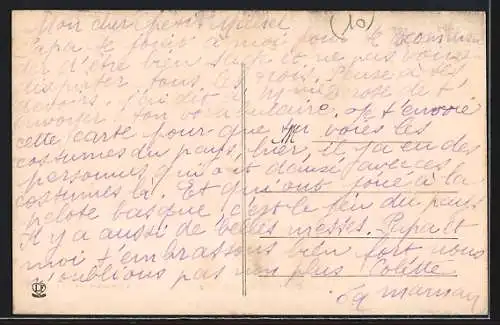 (10)
Mon cher petit
Papa se joint à moi pour te recomman
der d'être bien sage et ne pas vous
disputer tous les trois. Pense à tes
devoirs. J'ai dit à Mme rose de t'
envoyer ton vocabulaire. Je t'envoie
cette carte pour que tu voies les
costumes du pays, hier, il y a eu des
personnes qui ont dansé avec ces
costumes là. Et qui ont joué à la
pelote basque c'est le jeu du pays
Il y a aussi de belles messes. Papa et
moi t'embrassons bien fort nous
n'oublions pas non plus Colette
Ta maman